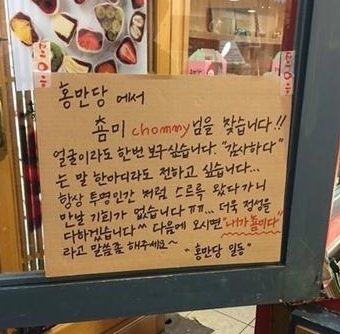 홍만당 에서
춈미 chommy님을 찾습니다!!
얼굴이라도 한번 보구싶습니다. "감사하다"
는 말 한마디라도 전하고 싶습니다...
항상 투명인간 처럼 스르륵 왔다가니
만날 기회가 없습니다 ㅠㅠ... 더욱 정성을
다하겠습니다^^ 다음에 오시면 "내가춈미다"
라고 말씀좀 해주세요~
"홍만당 일동"